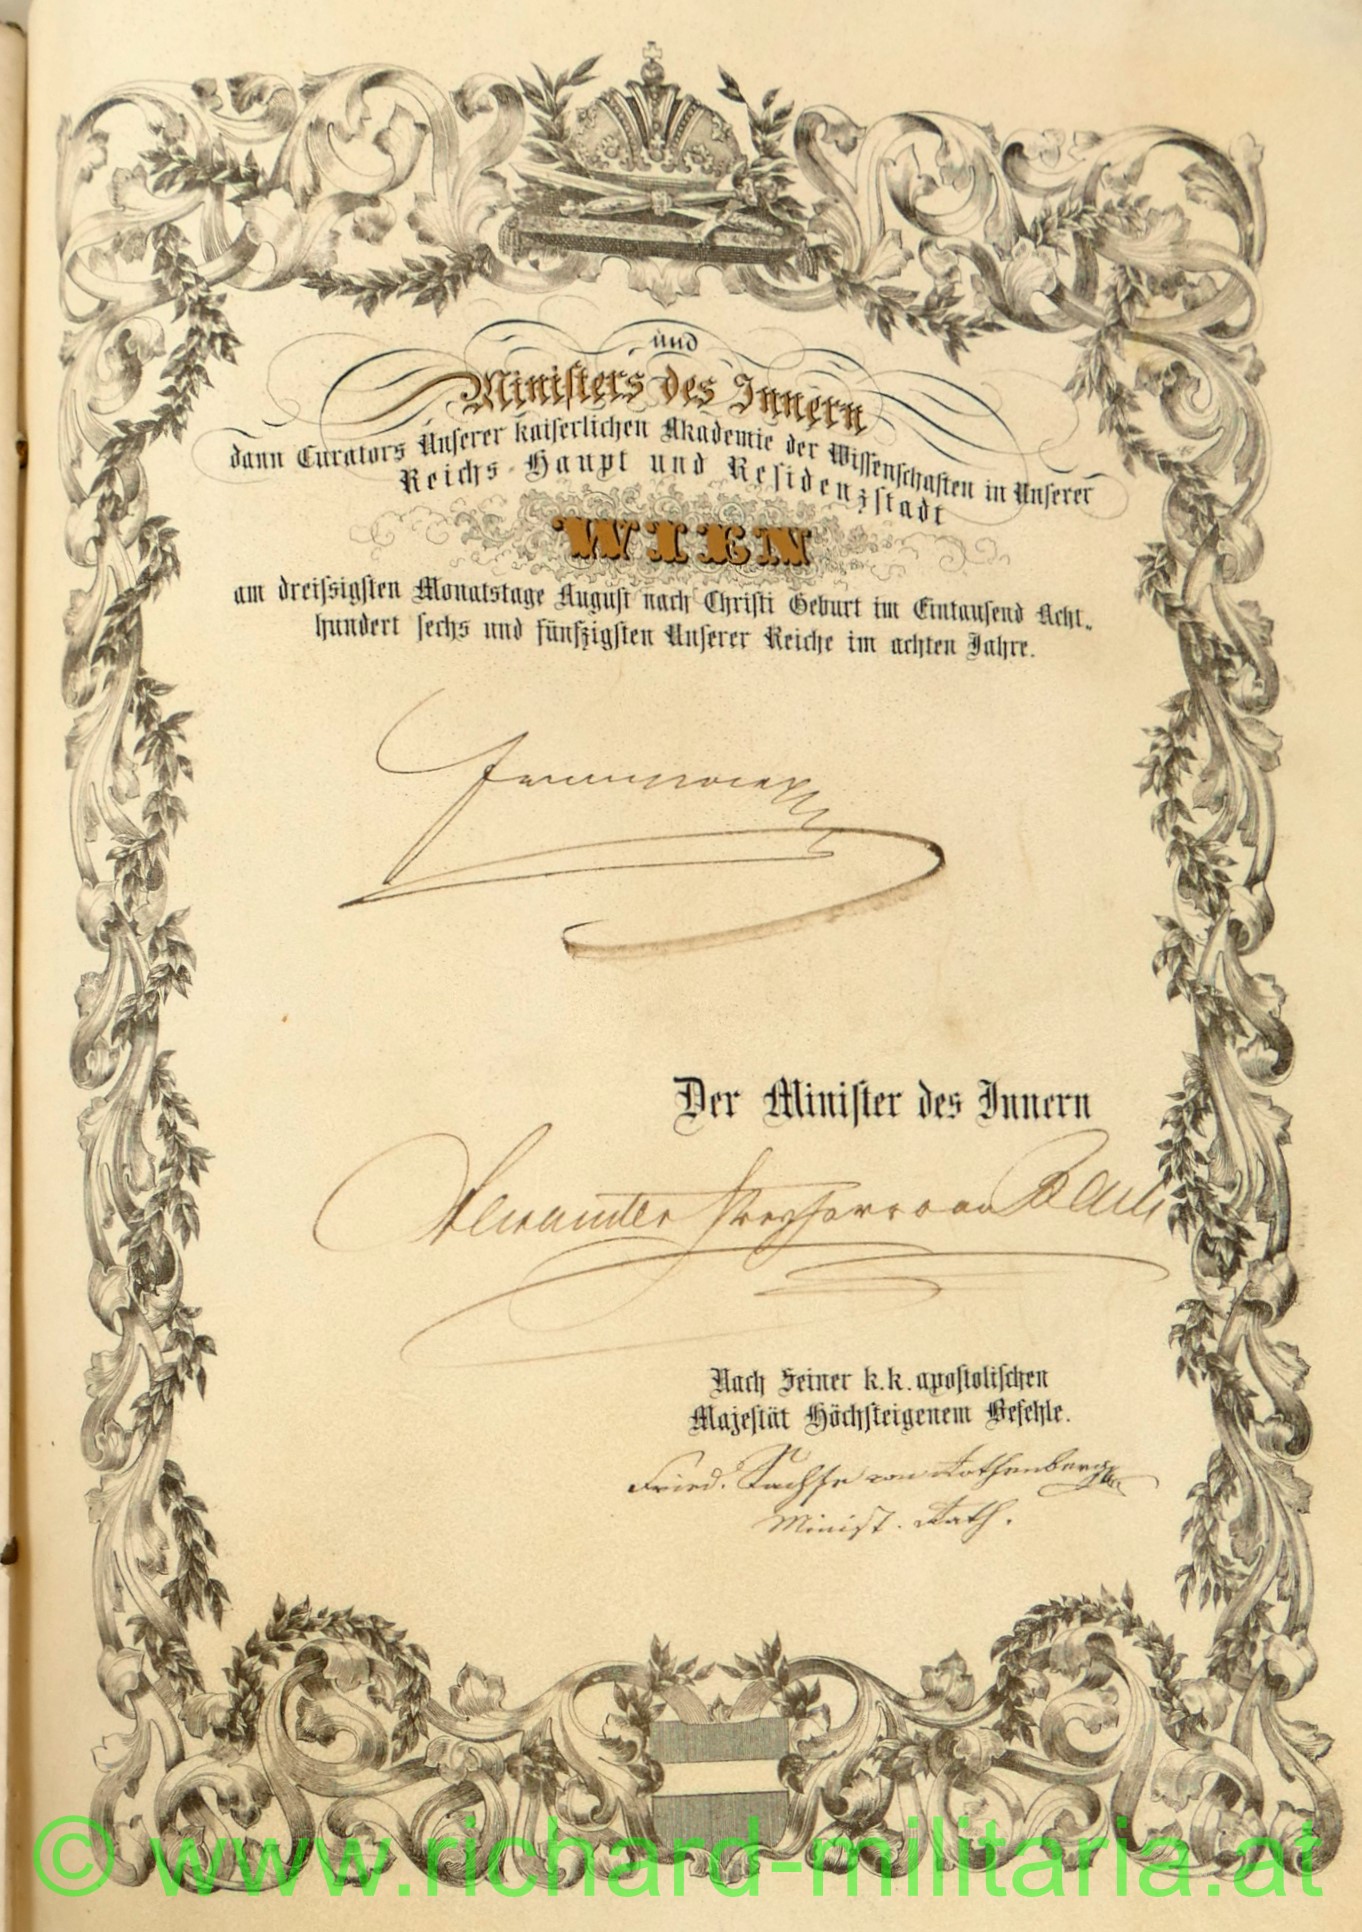 und
Ministers des Innern
dann Curators Unserer kaiserlichen Akademie der Wissenschaften in Unserer
Reichs-Haupt und Residenzstadt
WIEN
am dreissigsten Monatstage August nach Christi Geburt im Eintausend Acht-
hundert sechs und fünfzigsten Unserer Reiche im achten Jahre.
Der Minister des Innern
Alexander Freyherr von Bach
Nach Seiner k. k. apostolischen
Majestät Höchsteigenem Befehle.
Fried. Sachse von Rothenberg
Minist. Rath.
© www.richard-militaria.at